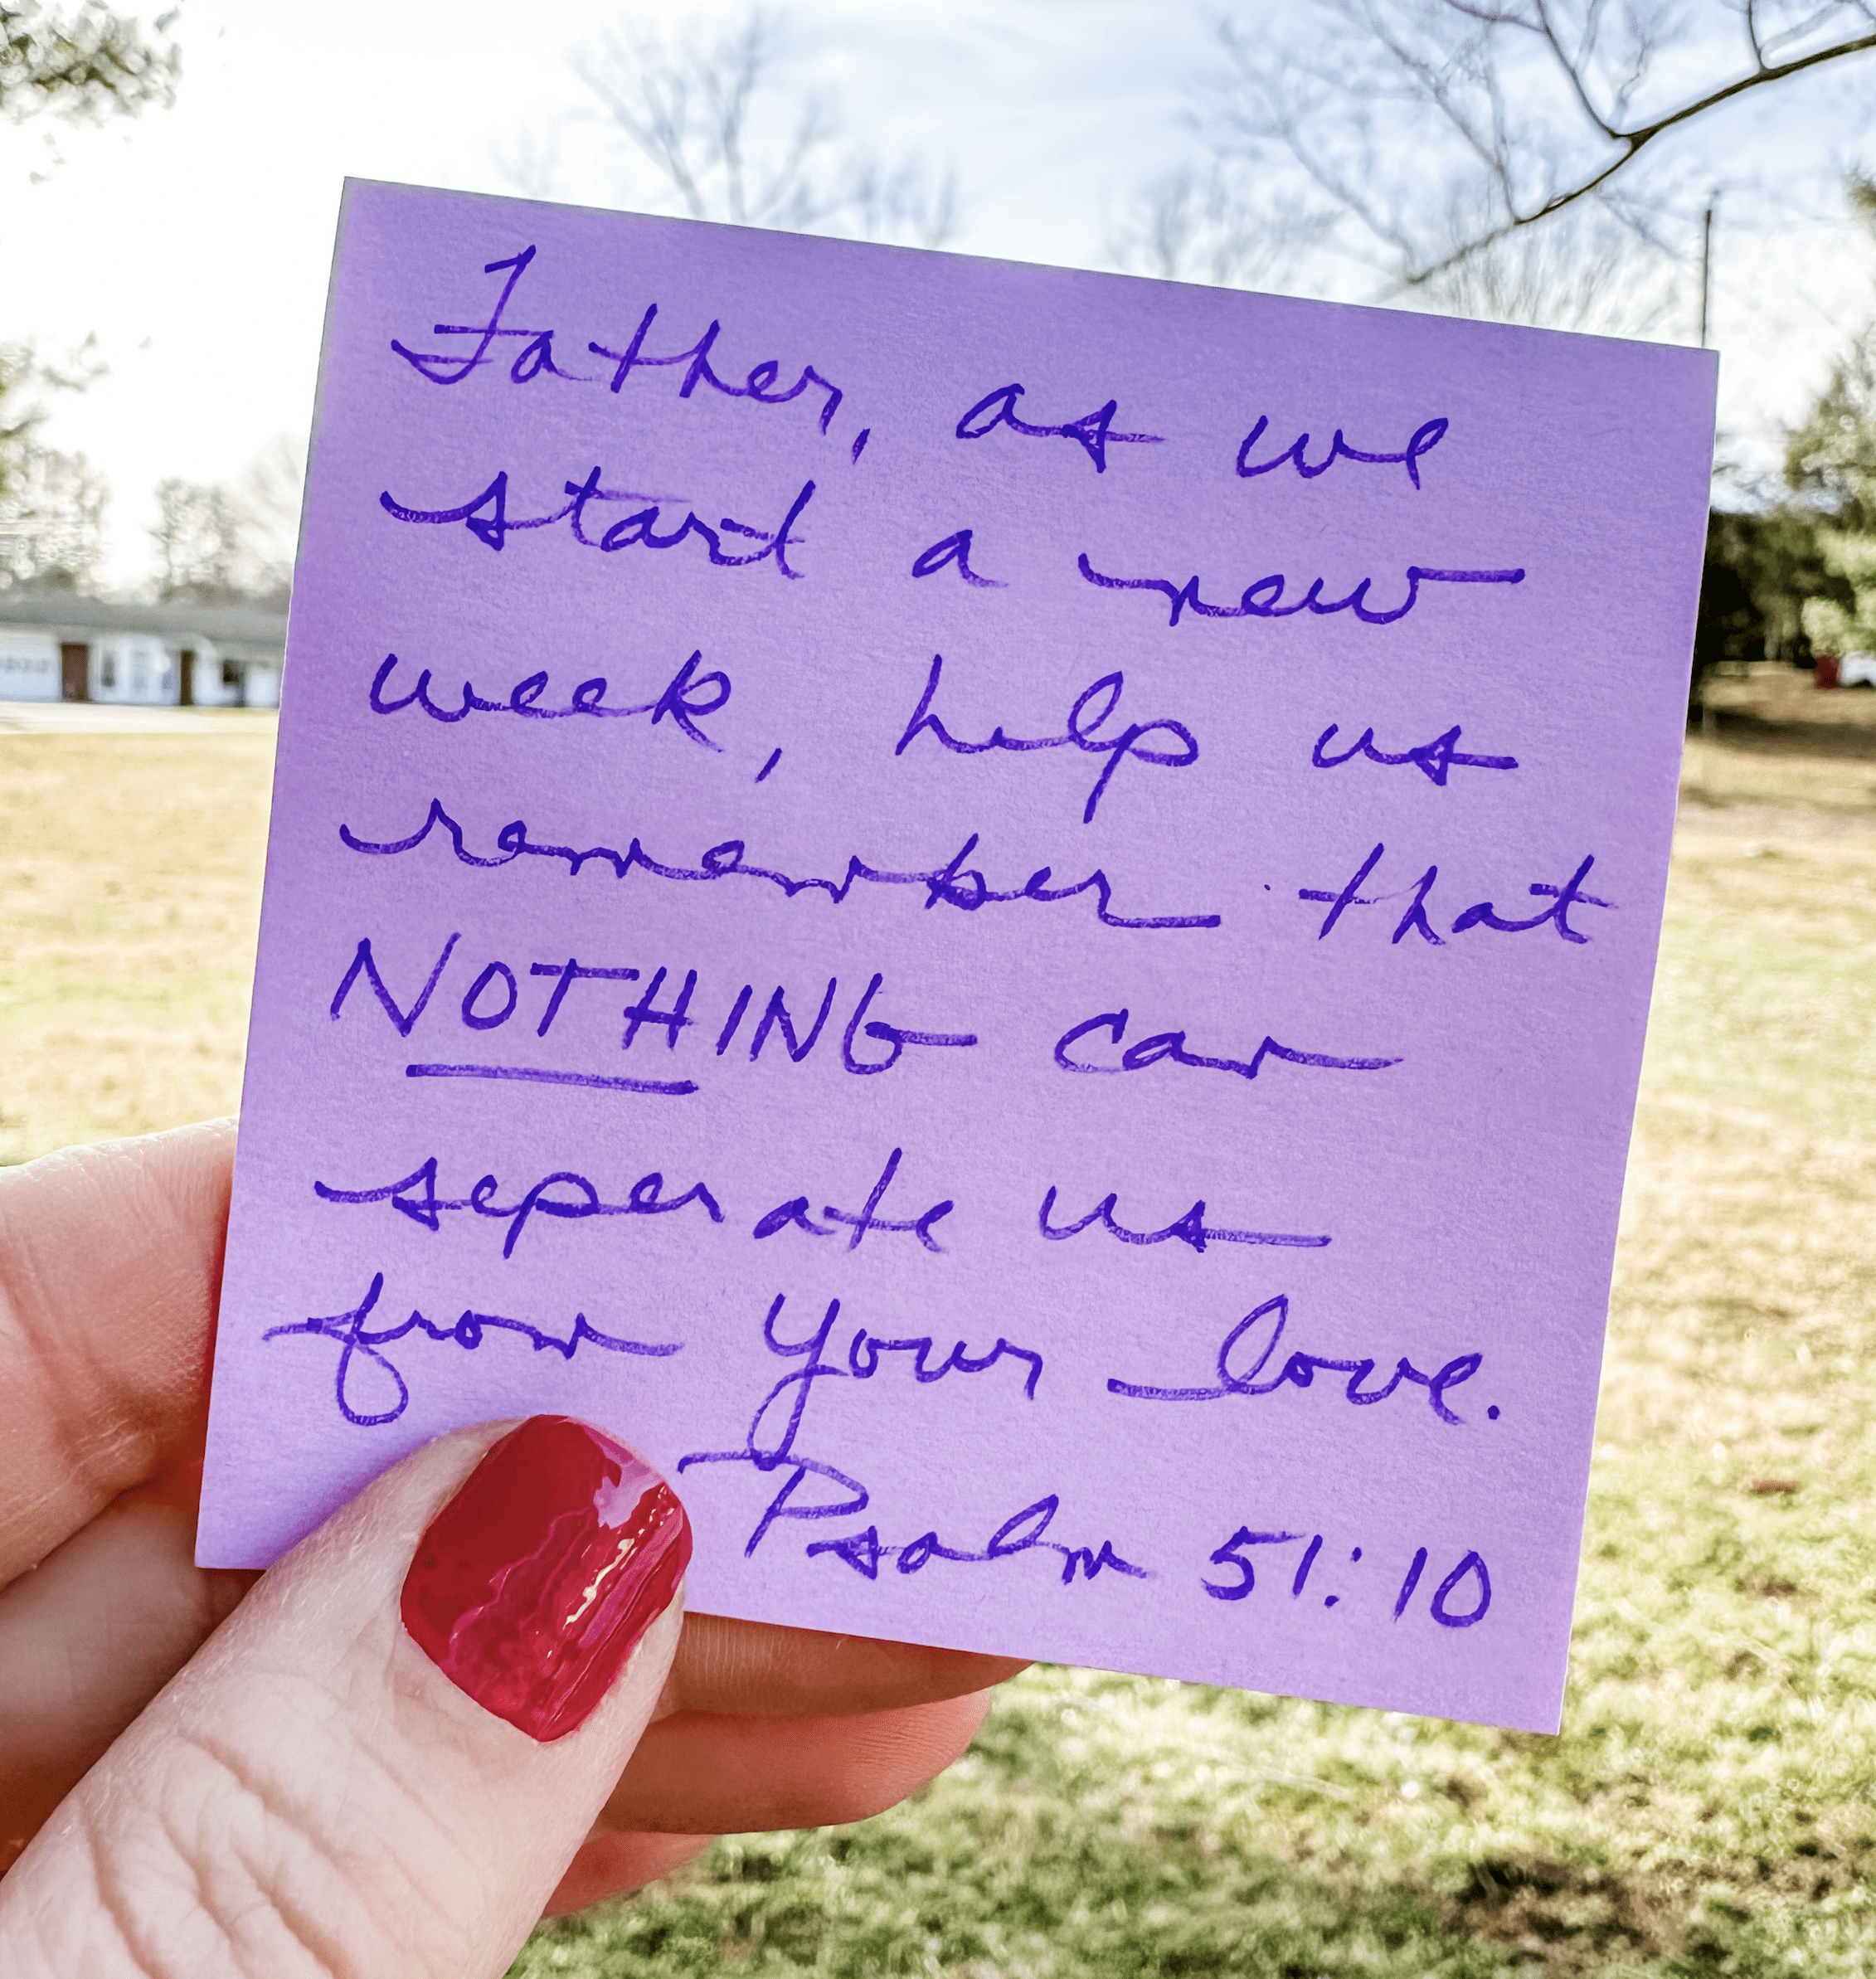 Father, as we
start a new
week, help us
remember that
NOTHING can
seperate us
from Your love.
Psalm 51:10